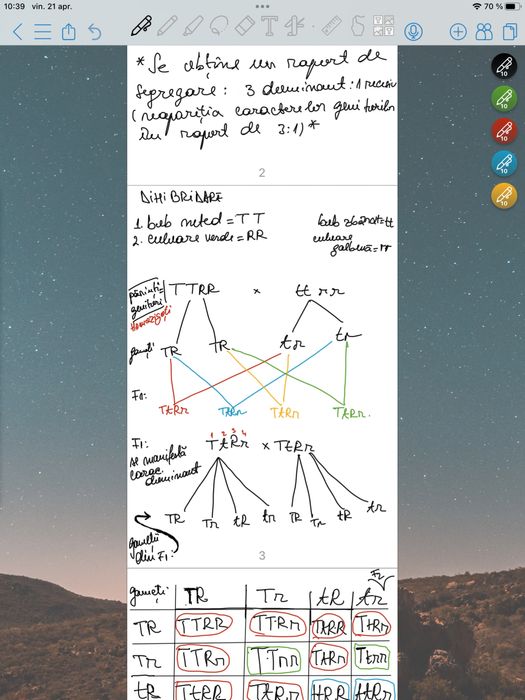 10:39 vin. 21 apr.
70 %
* Se obține un raport de
segregare: 3 dominant : 1 recesiv
(reapariția caracterelor genitorilor
în raport de 3:1) *
2
DIHIBRIDARE
1. bob neted = TT
2. culoare verde = RR
bob zbârcit = tt
culoare
galbenă = rr
părinți =
genitori
homozigoți
TTRR × tt rr
gameți TR TR tr tr
F1:
TtRr TtRr TtRr TtRr.
1 2 3 4
F1: TtRr × TtRr
se manifestă
carac.
dominant
TR Tr tR tr TR Tr tR tr
gameții
din F1:
3
F2
gameți TR Tr tR tr
TR TTRR TTRr TtRR TtRr
Tr TTRr TTrr TtRr Ttrr
tR TtRR TtRr ttRR ttRr
10
10
10
10
10